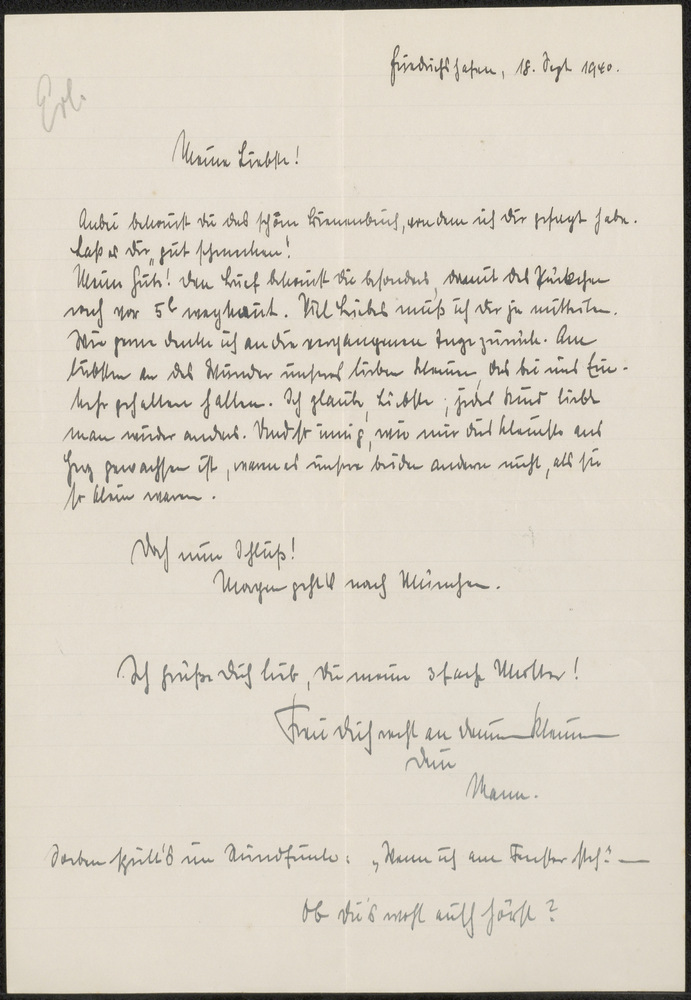 Erl.
Friedrichshafen, 18. Sept. 1940.
Meine Liebste!
Anbei bekommst Du das schöne Bienenbuch, von dem ich Dir gesagt habe.
Laß es Dir „gut schmecken!
Meine Gute! Den Brief bekommst Du besonders, damit das Päckchen
noch vor 5h wegkommt. Viel Liebes muß ich Dir ja mitteilen.
Wie gerne denke ich an die vergangenen Tage zurück. Am
liebsten an das Wunder unseres lieben Kleinen, das bei uns Ein-
kehr gehalten hat. Ich glaube, Liebste, jedes Kind liebt
man wieder anders. Und so innig, wie mir das Kleinste ans
Herz gewachsen ist, waren es unsere beiden andern nicht, als sie
so klein waren.
Doch nun Schluß!
Morgen geht's nach München.
Ich grüße Dich lieb, Du meine 3fache Mutter!
Freu Dich recht an Deinem Kleinen
Dein
Mann.
Soeben spielt's im Rundfunk: „Wenn ich am Fenster steh" —
Ob Du's wohl auch hörst?